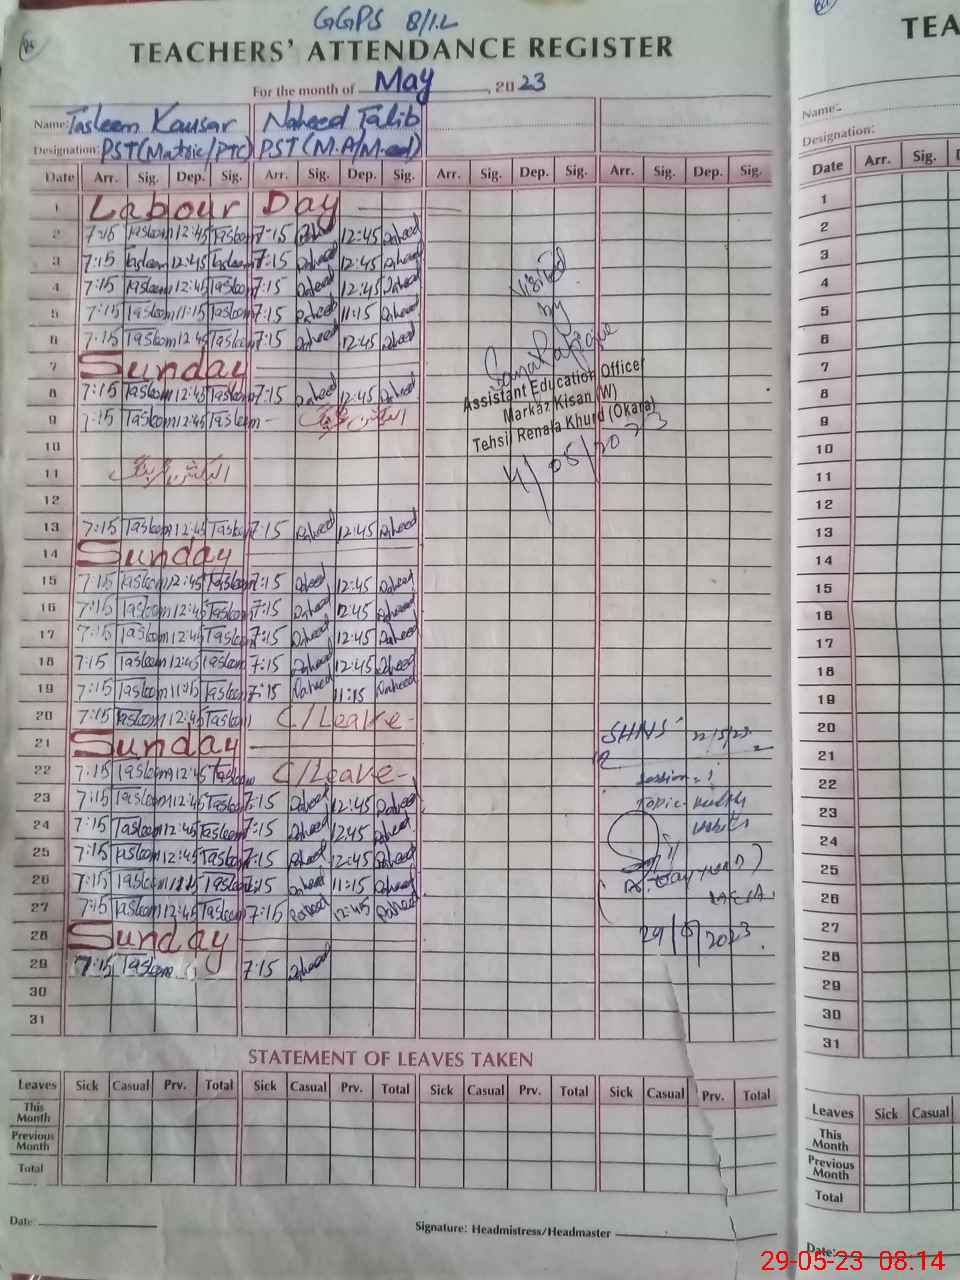 GGPS 8/1.L
TEACHERS' ATTENDANCE REGISTER
For the month of May, 2023
Name: Tasleem Kausar Naheed Talib
Designation: PST (Matric/PTC) PST (M.A/M.ed)
Date Arr. Sig. Dep. Sig. Arr. Sig. Dep. Sig. Arr. Sig. Dep. Sig. Arr. Sig. Dep. Sig.
1 Labour Day
2 7:15 Tasleem 12:45 Tasleem 7:15 Naheed 12:45 Naheed
3 7:15 Tasleem 12:45 Tasleem 7:15 Naheed 12:45 Naheed
4 7:15 Tasleem 12:45 Tasleem 7:15 Naheed 12:45 Naheed
5 7:15 Tasleem 11:15 Tasleem 7:15 Naheed 11:15 Naheed
6 7:15 Tasleem 12:45 Tasleem 7:15 Naheed 12:45 Naheed
7 Sunday
8 7:15 Tasleem 12:45 Tasleem 7:15 Naheed 12:45 Naheed
9 7:15 Tasleem 12:45 Tasleem
10
11
12
13 7:15 Tasleem 12:45 Tasleem 7:15 Naheed 12:45 Naheed
14 Sunday
15 7:15 Tasleem 12:45 Tasleem 7:15 Naheed 12:45 Naheed
16 7:15 Tasleem 12:45 Tasleem 7:15 Naheed 12:45 Naheed
17 7:15 Tasleem 12:45 Tasleem 7:15 Naheed 12:45 Naheed
18 7:15 Tasleem 12:45 Tasleem 7:15 Naheed 12:45 Naheed
19 7:15 Tasleem 11:15 Tasleem 7:15 Naheed 11:15 Naheed
20 7:15 Tasleem 12:45 Tasleem C/Leave-
21 Sunday
22 7:15 Tasleem 12:45 Tasleem C/Leave-
23 7:15 Tasleem 12:45 Tasleem 7:15 Naheed 12:45 Naheed
24 7:15 Tasleem 12:45 Tasleem 7:15 Naheed 12:45 Naheed
25 7:15 Tasleem 12:45 Tasleem 7:15 Naheed 12:45 Naheed
26 7:15 Tasleem 11:15 Tasleem 7:15 Naheed 11:15 Naheed
27 7:15 Tasleem 12:45 Tasleem 7:15 Naheed 12:45 Naheed
28 Sunday
29 7:15 Tasleem 7:15 Naheed
30
31
Visited
by
Sana Rafique
Assistant Education Officer
Markaz Kisan (W)
Tehsil Renala Khurd (Okara)
4/05/2023
SHNS 22/5/23
Session: 1
Topic-
29/5/2023.
STATEMENT OF LEAVES TAKEN
Leaves Sick Casual Prv. Total Sick Casual Prv. Total Sick Casual Prv. Total Sick Casual Prv. Total
This Month
Previous Month
Total
Date:
Signature: Headmistress/Headmaster
TEA
Name:
Designation:
Date Arr. Sig.
1
2
3
4
5
6
7
8
9
10
11
12
13
14
15
16
17
18
19
20
21
22
23
24
25
26
27
28
29
30
31
Leaves Sick Casual
This Month
Previous Month
Total
Date:
29-05-23 08.14